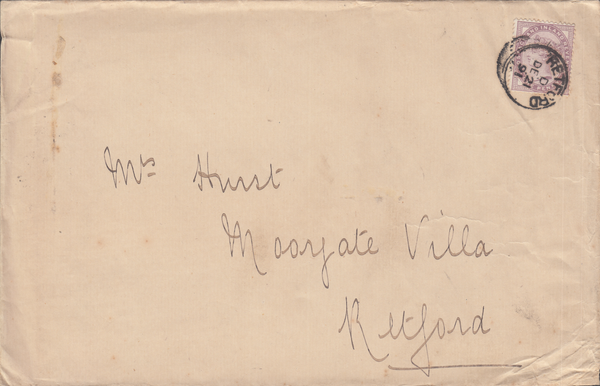 RETFORD
D
DE 21
91
Mrs Hurst
Moorgate Villa
Retford